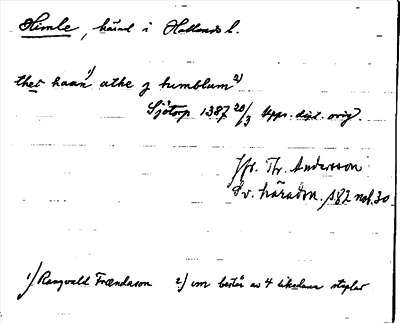 Himle, härad i Hallands l.
thet haan¹⁾ athe j humblum²⁾
Sjötorp 1387 20/3 Uppr. dipl. orig.
Jfr. Th. Andersson
Sv. häradsn. s 82 not. 30
1) Rangvald Frændason 2) um består av 4 likadana staplar